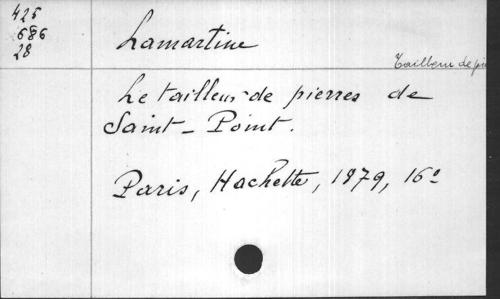 425
686
28
Lamartine
Tailleur de pi
Le tailleur de pierres de
Saint-Point.
Paris, Hachette, 1879, 16º